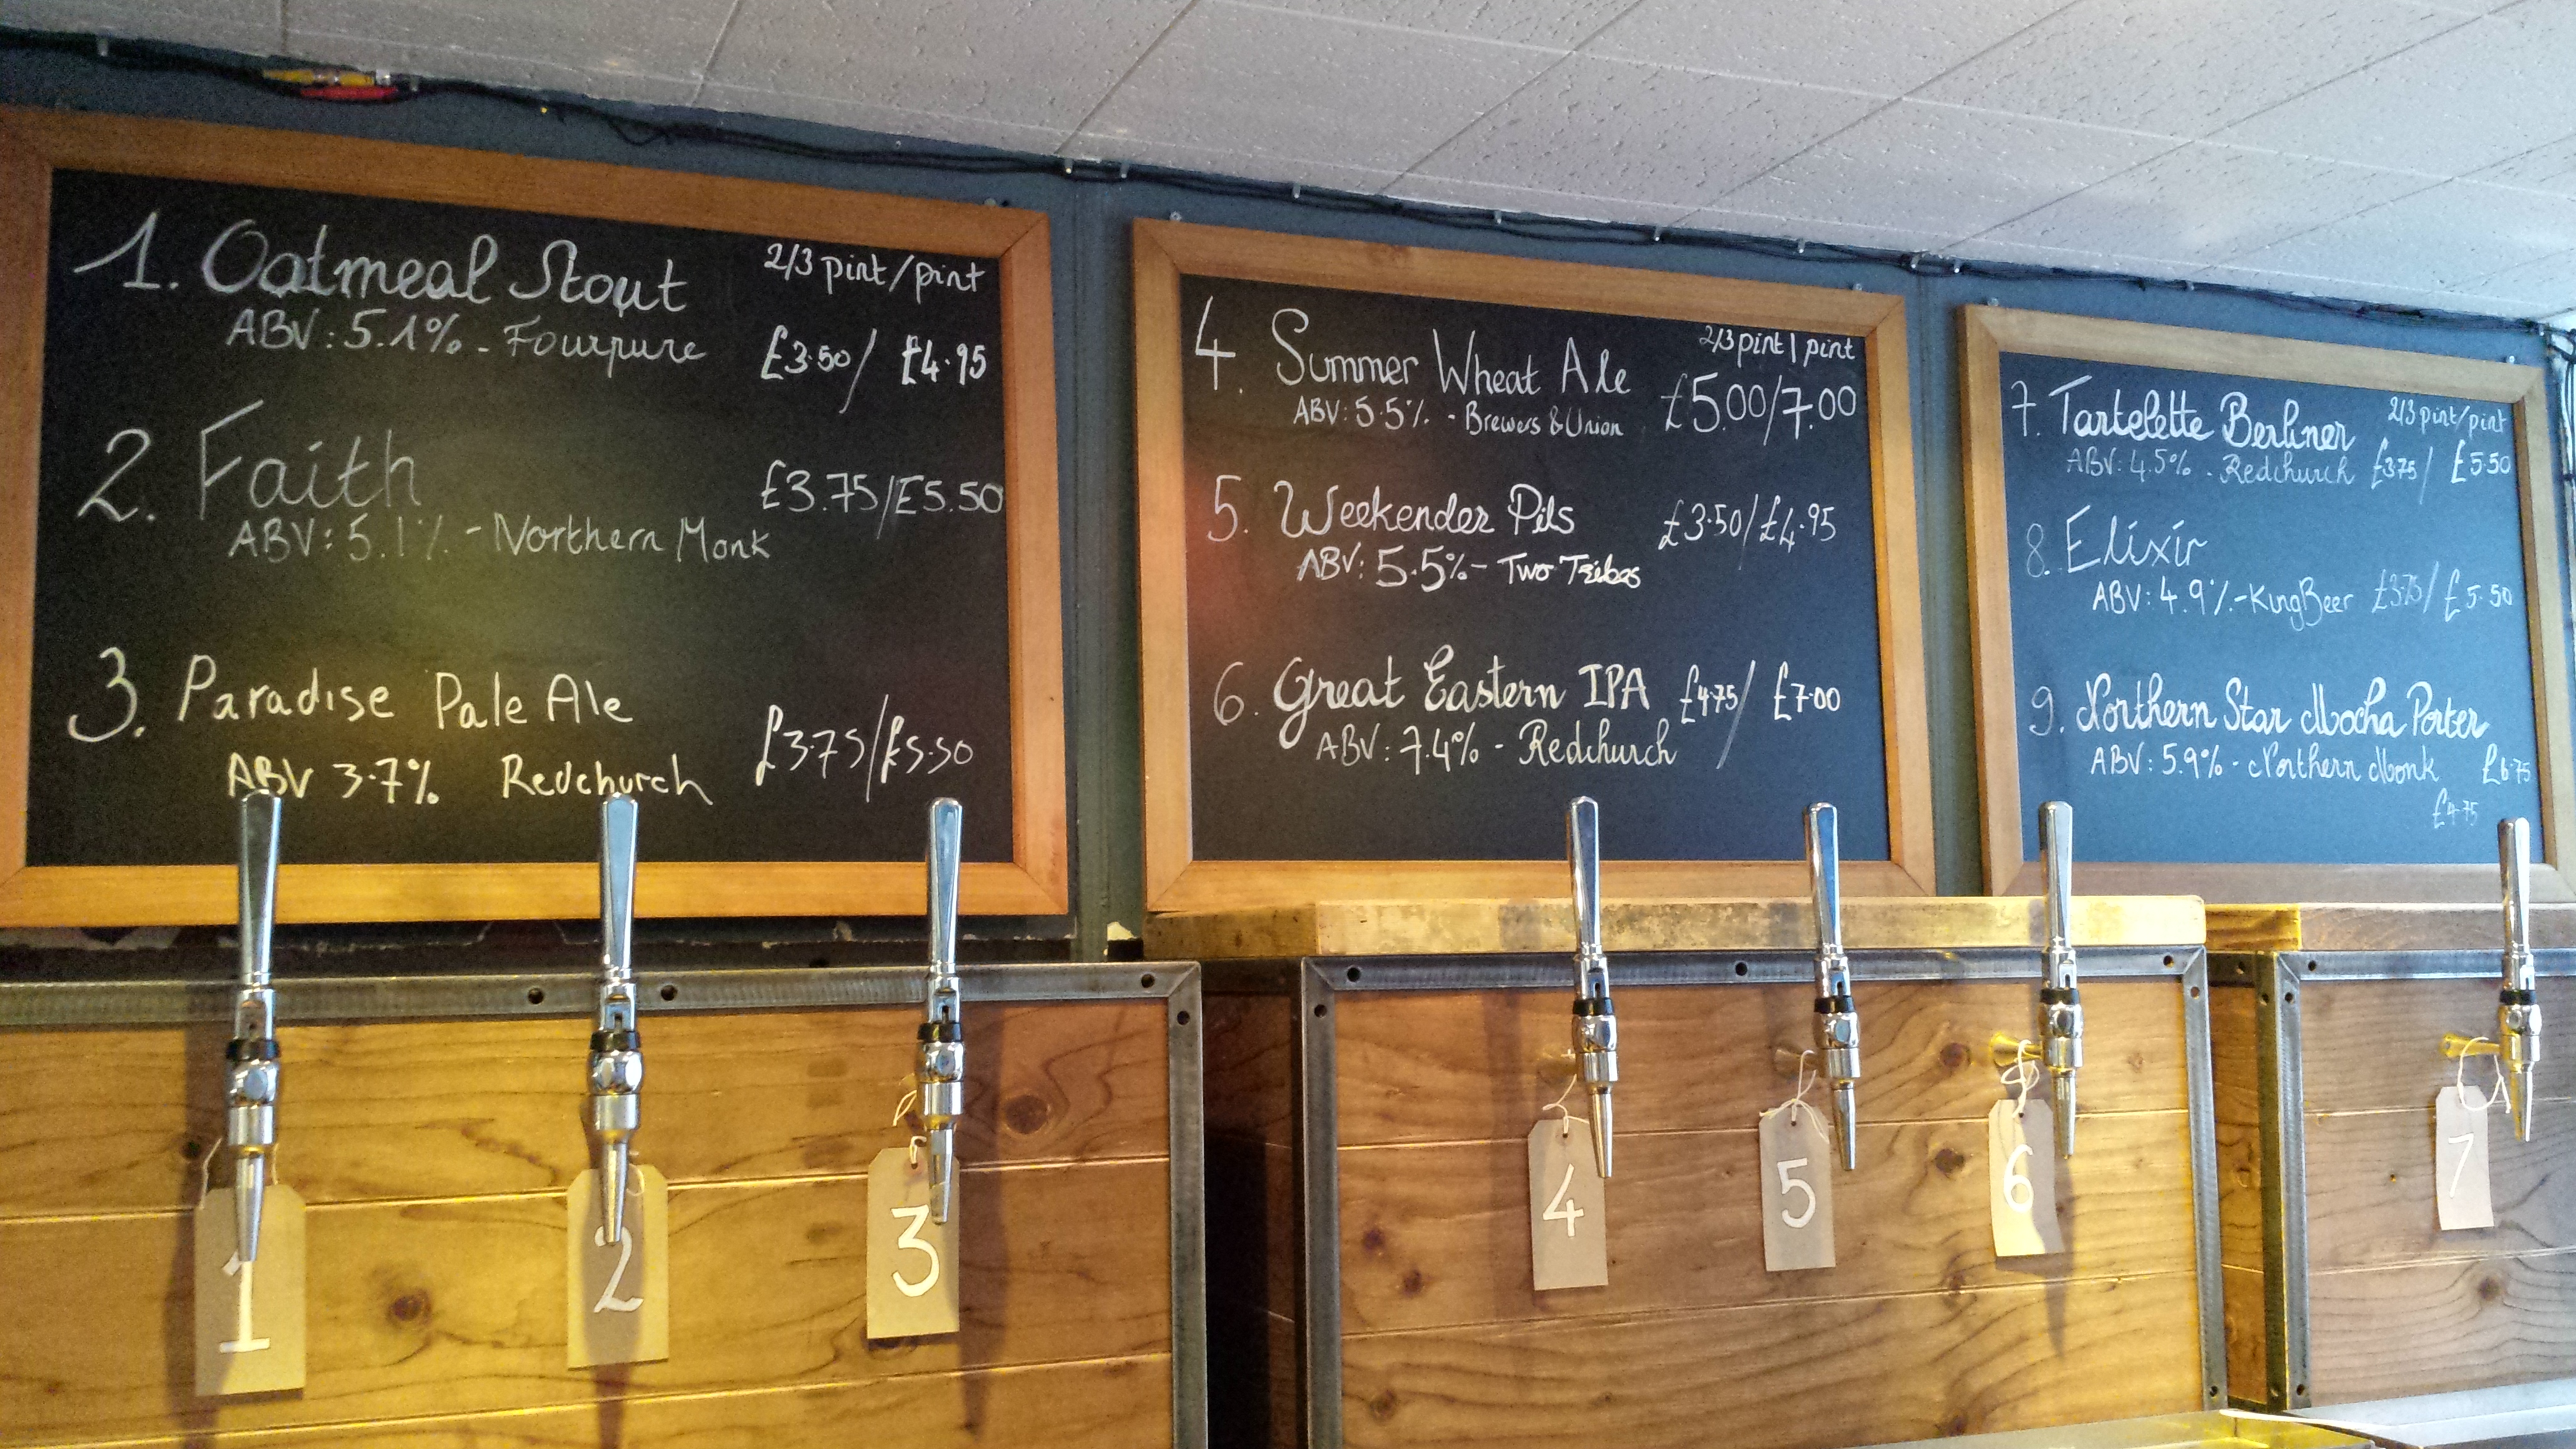 1. Oatmeal Stout 2/3 pint/pint
ABV: 5.1% - Fourpure £3.50/ £4.95
2. Faith £3.75/£5.50
ABV: 5.1% - Northern Monk
3. Paradise Pale Ale
ABV 3.7% Redchurch £3.75/£5.50
4. Summer Wheat Ale 2/3 pint | pint
ABV: 5.5% - Brewers & Union £5.00/7.00
5. Weekender Pils £3.50/£4.95
ABV: 5.5% - Two Tribes
6. Great Eastern IPA £4.75/ £7.00
ABV: 7.4% - Redchurch
7. Tartelette Berliner 2/3 pint/pint
ABV: 4.5% - Redchurch £3.75/ £5.50
8. Elixir
ABV: 4.9% - KingBeer £3.75/ £5.50
9. Northern Star Mocha Porter
ABV: 5.9% - Northern Monk £6.75
£4.75
1
2
3
4
5
6
7